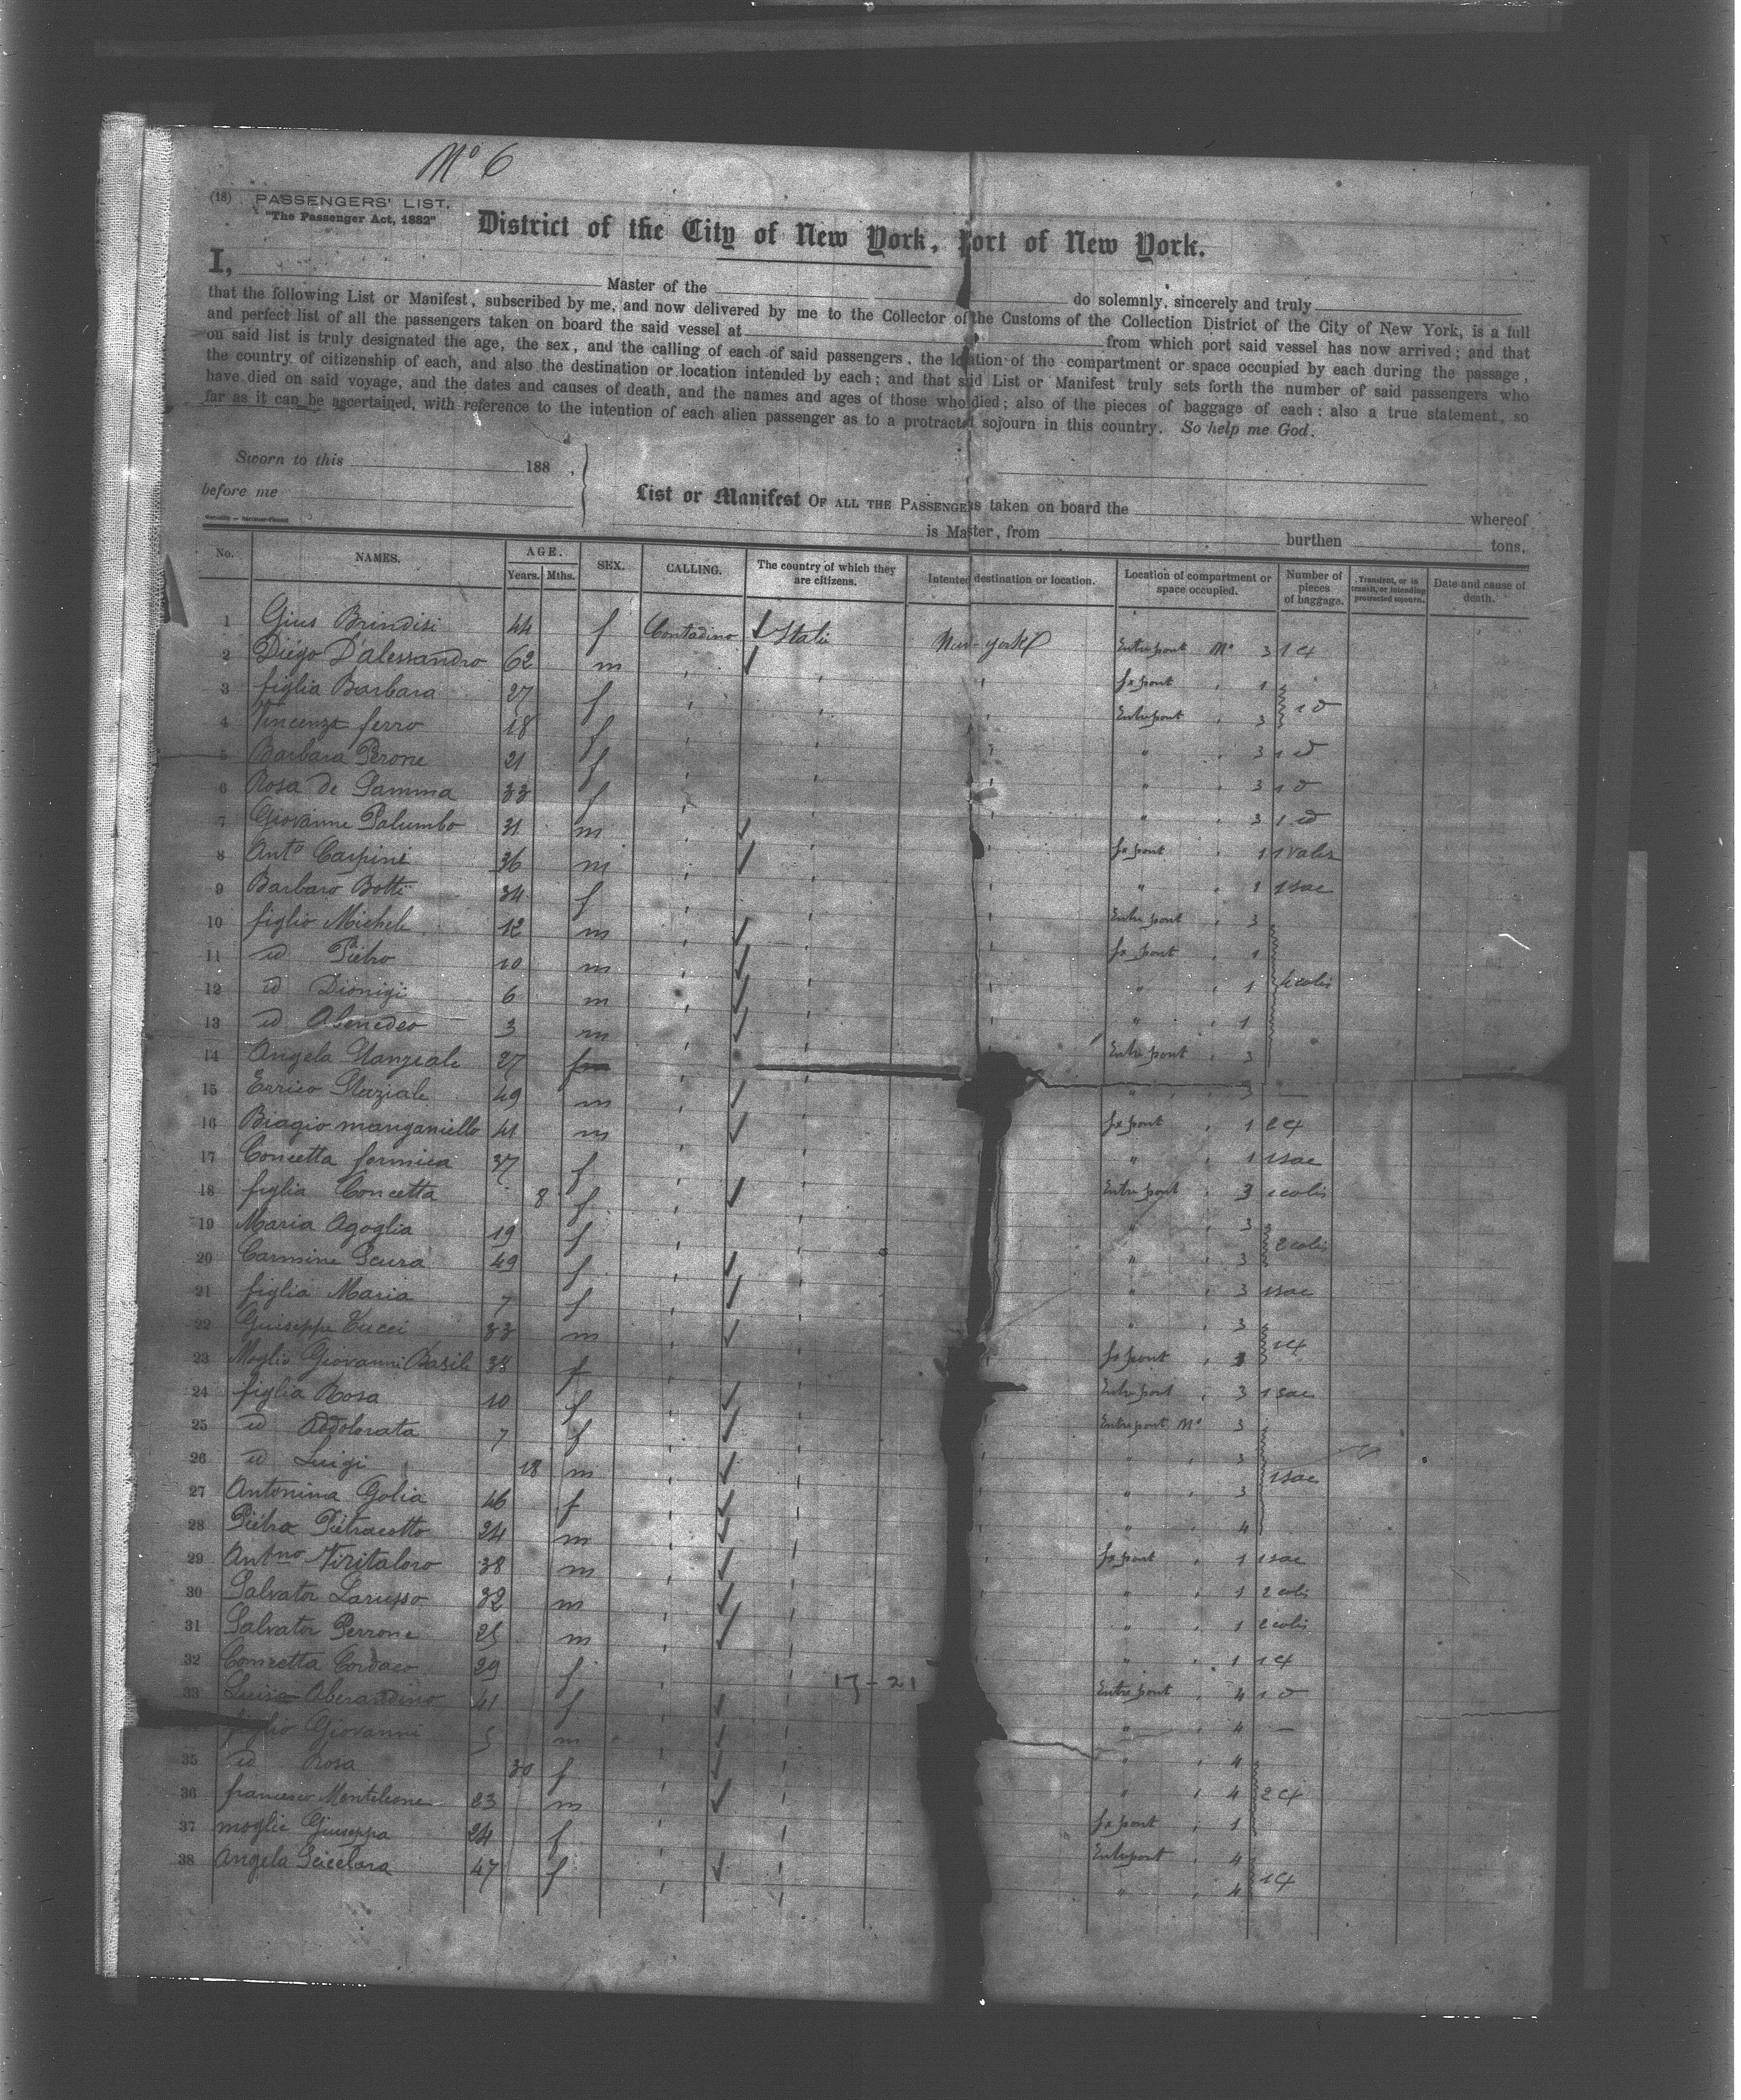 Nº 6
(18) PASSENGERS' LIST.
"The Passenger Act, 1882"
District of the City of New York, Port of New York.
I, Master of the do solemnly, sincerely and truly
that the following List or Manifest, subscribed by me, and now delivered by me to the Collector of the Customs of the Collection District of the City of New York, is a full
and perfect list of all the passengers taken on board the said vessel at from which port said vessel has now arrived; and that
on said list is truly designated the age, the sex, and the calling of each of said passengers, the location of the compartment or space occupied by each during the passage,
the country of citizenship of each, and also the destination or location intended by each; and that said List or Manifest truly sets forth the number of said passengers who
have died on said voyage, and the dates and causes of death, and the names and ages of those who died; also of the pieces of baggage of each: also a true statement, so
far as it can be ascertained, with reference to the intention of each alien passenger as to a protracted sojourn in this country. So help me God.
Sworn to this 188 ,
before me
List or Manifest OF ALL THE PASSENGERS taken on board the whereof
is Master, from burthen tons.
No. NAMES. AGE. Years. Mths. SEX. CALLING. The country of which they are citizens. Intented destination or location. Location of compartment or space occupied. Number of pieces of baggage. Transient, or in transit, or intending protracted sojourn. Date and cause of death.
1 Gius Brindisi 44 f Contadino Italie New-york Entrepont Nº 3 1
2 Diego D'alessandro 62 m fx pont 1
3 figlia Barbara 27 f Entrepont 3
4 Vincenza ferro 18 f " 3 1 id
5 Barbara Perone 21 f " 3 1
6 Rosa de Gamma 33 f " 3 1 id
7 Giovanni Palumbo 31 m fx pont 1 1 valis
8 Antº Carpini 36 m " 1 1 sac
9 Barbaro Botti 34 f Entre pont 3
10 figlio Michele 12 m fx pont 1
11 id Pietro 10 m " 1 4 colis
12 id Dionigi 6 m " 1
13 id 3 m Entre pont 3
14 Angela 27 f " 3 —
15 Errico 49 m fx pont 1 2
16 Biagio manganiello 41 m " 1 1 sac
17 Concetta formica 37 f Entre pont 3 colis
18 figlia Concetta 8 f " 3
19 Maria Agoglia 19 f " 3 2 colis
20 Carmine Scura 49 f " 3 1 sac
21 figlia Maria 7 f " 3
22 Giuseppe Tucci 33 m fx pont 1
23 Moglie Giovanni Basile 38 f Entre pont 3 1 sac
24 figlia Rosa 10 f Entrepont Nº 3
25 id Addolorata 7 f " 3
26 id Luigi 18 m " 3 1 sac
27 Antonina Golia 46 f " 4
28 Pietro Pietracotto 24 m fx pont 1 1 sac
29 Antno 38 m " 1 2 colis
30 Salvator Larusso 32 m " 1 2 colis
31 Salvator Perrone 25 m " 1 1
32 Concetta Cordaco 29 f 17-21 Entre pont 4 1
33 Luisa 41 f " 4 —
figlio Giovanni 5 m " 4
35 id Rosa 30 f " 4 2
36 francesco Monteleone 23 m fx pont 1
37 moglie Giuseppa 24 f Entrepont 4
38 Angela 47 f " 4